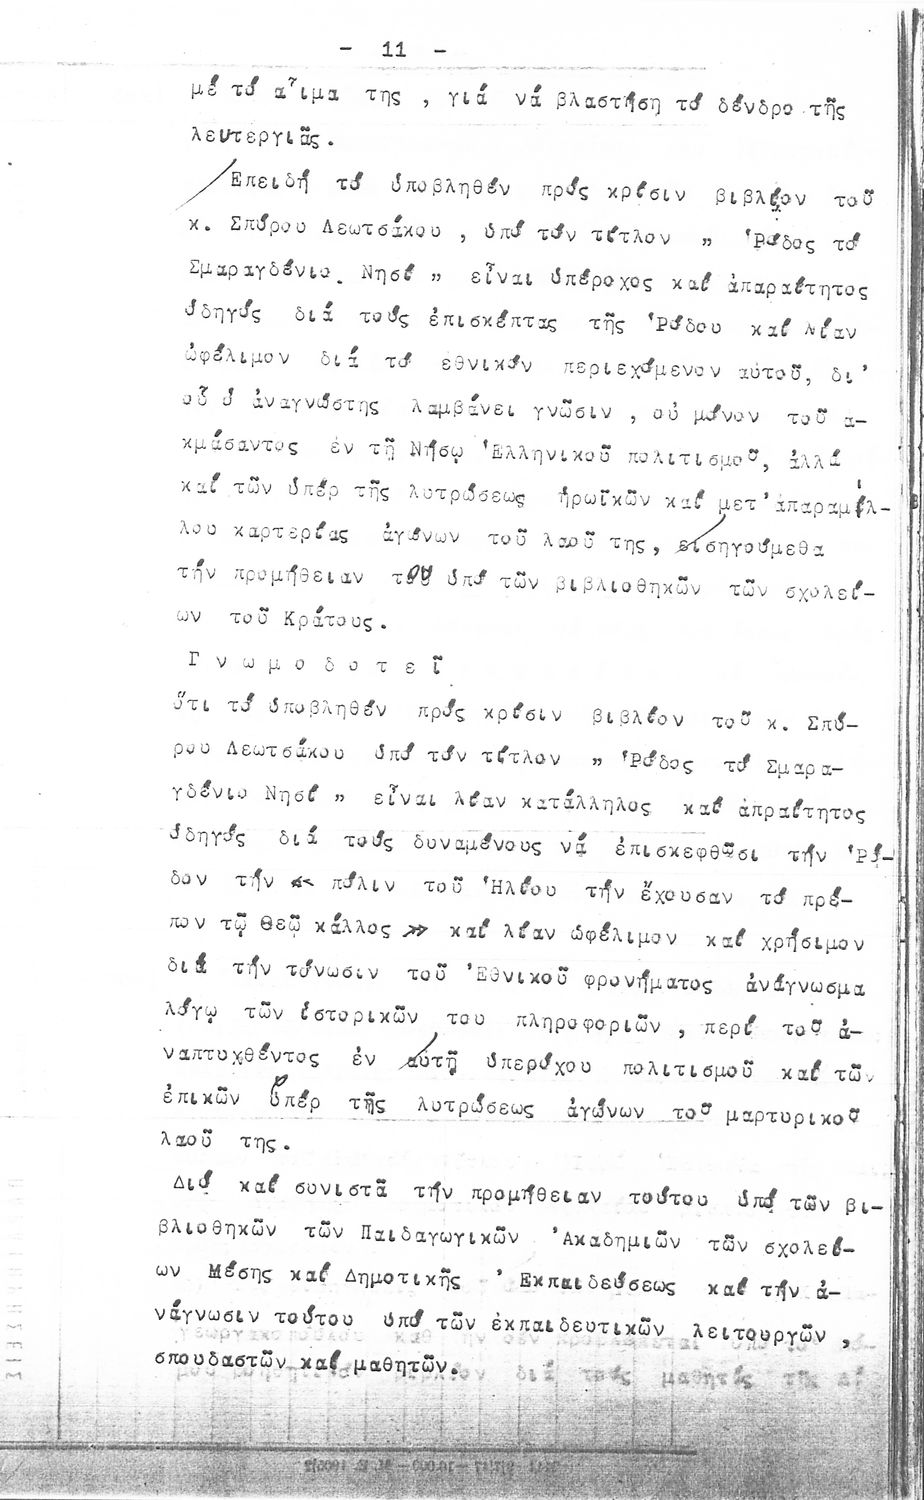 - 11 -
μέ τό αἷμα της , γιά νά βλαστήση τό δένδρο τῆς
λευτεργιᾶς.
Ἐπειδή τό ὑποβληθέν πρός κρίσιν βιβλίον τοῦ
κ. Σπύρου Λεωτσάκου , ὑπό τόν τίτλον „ Ῥόδος τό
Σμαραγδένιο Νησί „ εἶναι ὑπέροχος καί ἀπαραίτητος
ὁδηγός διά τούς ἐπισκέπτας τῆς Ῥόδου καί λίαν
ὠφέλιμον διά τό ἐθνικόν περιεχόμενον αὐτοῦ, δι'
οὗ ὁ ἀναγνώστης λαμβάνει γνῶσιν , οὐ μόνον τοῦ α-
κμάσαντος ἐν τῇ Νήσῳ Ἑλληνικοῦ πολιτισμοῦ, ἀλλά
καί τῶν ὑπέρ τῆς λυτρώσεως ἡρωϊκῶν καί μετ' ἀπαραμίλ-
λου καρτερίας ἀγώνων τοῦ λαοῦ της, εἰσηγούμεθα
τήν προμήθειαν του ὑπό τῶν βιβλιοθηκῶν τῶν σχολεί-
ων τοῦ Κράτους.
Γ ν ω μ ο δ ο τ ε ῖ
ὅτι τό ὑποβληθέν πρός κρίσιν βιβλίον τοῦ κ. Σπύ-
ρου Λεωτσάκου ὑπό τόν τίτλον „ Ῥόδος τό Σμαρα-
γδένιο Νησί „ εἶναι λίαν κατάλληλος καί ἀπραίτητος
ὁδηγός διά τούς δυναμένους νά ἐπισκεφθῶσι τήν Ῥό-
δον τήν << πόλιν τοῦ Ἡλίου τήν ἔχουσαν τό πρέ-
πον τῷ Θεῷ κάλλος >> καί λίαν ὠφέλιμον καί χρήσιμον
διά τήν τόνωσιν τοῦ Ἐθνικοῦ φρονήματος ἀνάγνωσμα
λόγῳ τῶν ἱστορικῶν του πληροφοριῶν , περί τοῦ ἀ-
ναπτυχθέντος ἐν αὐτῇ ὑπερόχου πολιτισμοῦ καί τῶν
ἐπικῶν ὑπέρ τῆς λυτρώσεως ἀγώνων τοῦ μαρτυρικοῦ
λαοῦ της.
Διό καί συνιστᾶ τήν προμήθειαν τούτου ὑπό τῶν βι-
βλιοθηκῶν τῶν Παιδαγωγικῶν Ἀκαδημιῶν τῶν σχολεί-
ων Μέσης καί Δημοτικῆς Ἐκπαιδεύσεως καί τήν ἀ-
νάγνωσιν τούτου ὑπό τῶν ἐκπαιδευτικῶν λειτουργῶν ,
σπουδαστῶν καί μαθητῶν.